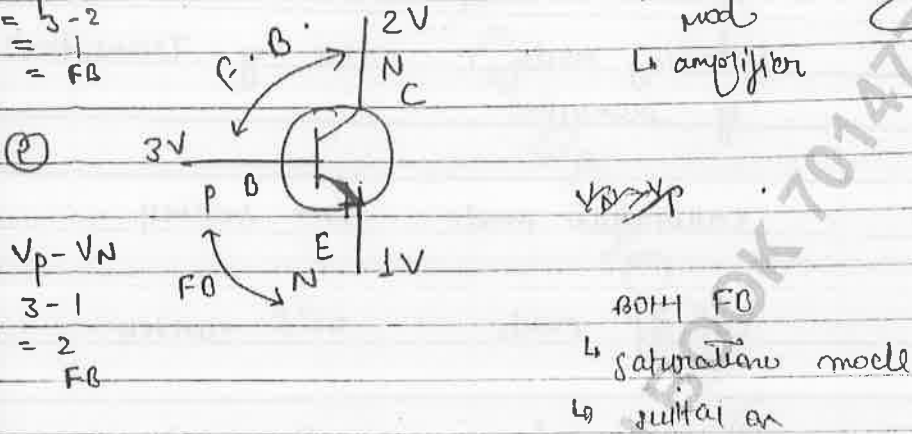 = 3-2
= 1
= FB
F.B.
2V
N
C
mod
↳ amplifier
②
3V
P B
E
N
1V
FB
Vp - VN
3 - 1
= 2
FB
BOTH FB
↳ saturation mode
↳ on
BOOK 70147